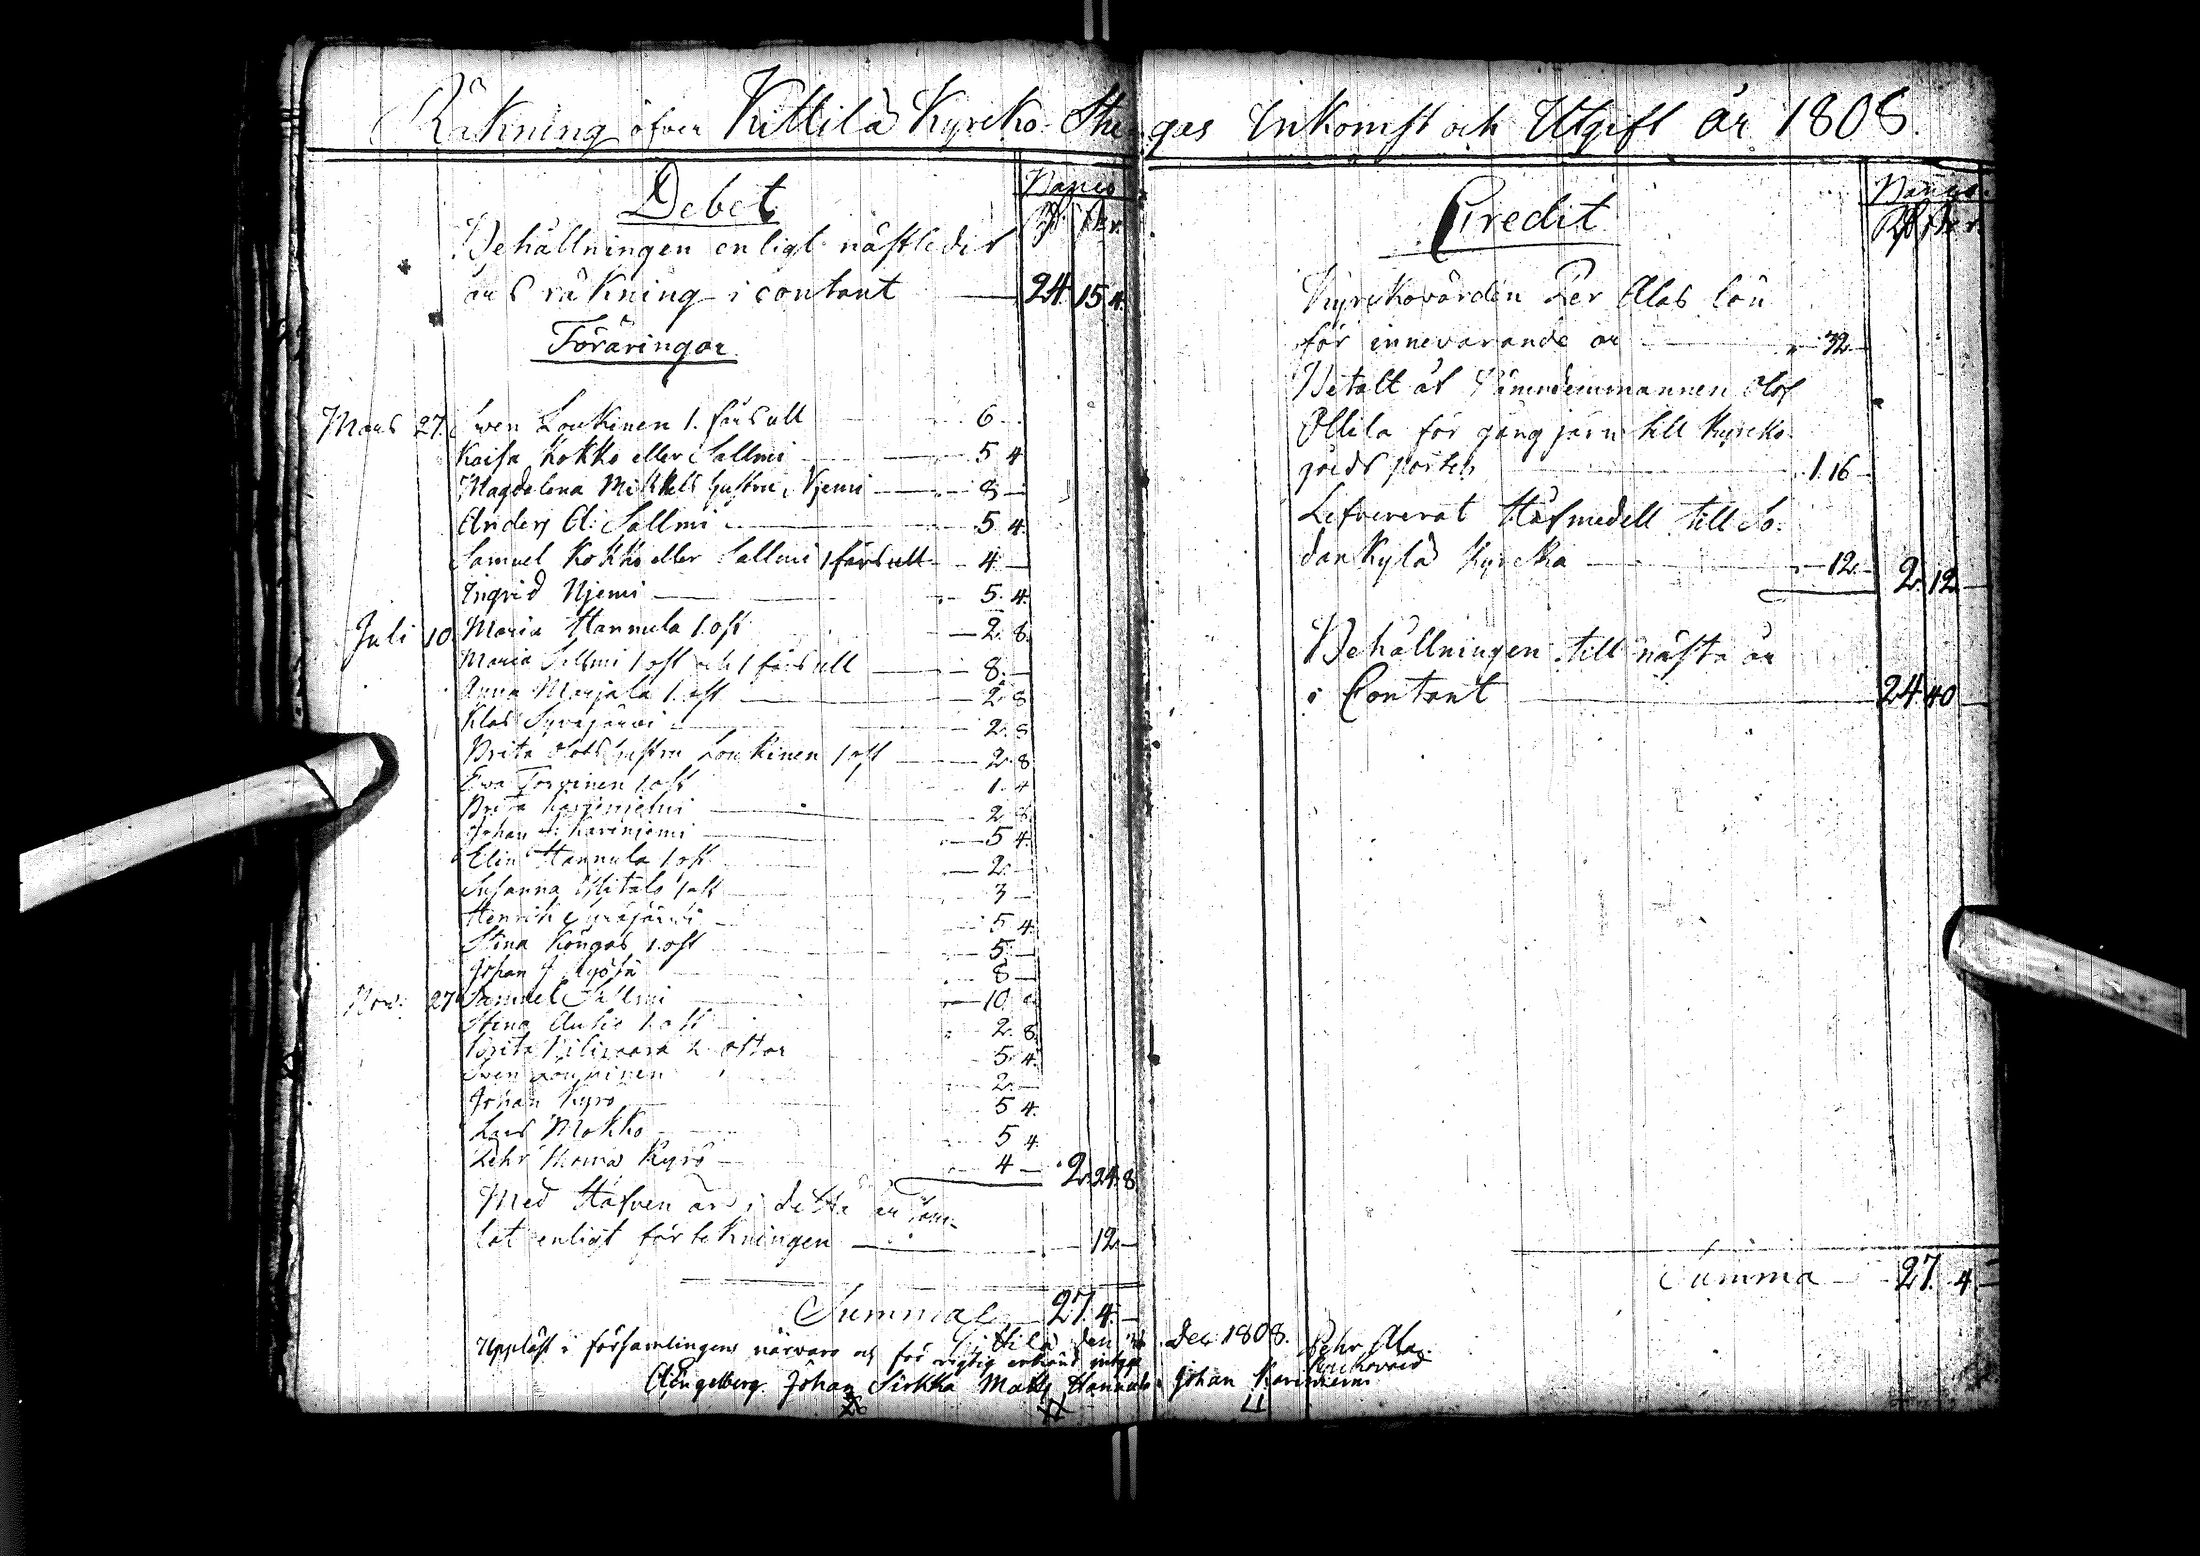 Räkning öfver Kittilä Kyrcko Stu gas Inkomst och Utgift år 1808.
Debet
Banco
Rd sk r
Behållningen enligt nästledit
års räkning i contant 24 15 4.
Föräringar
Mars 27. Swen Loukinen 1. fårs ull 6 -
Kaisa Kokko eller Sallmi 5 4
Magdalena Mikkels hustru Njemi 8 -
Anders A: Sallmi 5 4.
Samuel Kokko eller Sallmi 1 fårs ull 4 -
Ingrid Njemi 5. 4.
Juli 10. Maria Hannula 1. ost 2. 8.
Maria Sallmi 1 ost och 1 fårs ull 8. -
Anna Marjala 1. ost 2. 8
Klas Syväjärvi 2. 8
Brita Olofs hustru Loukinen 1 ost 2. 8
Ewa Torvinen 1 ost 1. 4
Brita Kariniemi 2 8
Johan Kariniemi 5 4.
Elin Hannula 1 ost 2. -
Susanna 1 ost 3 -
Henrik Syväjärvi 5 4.
Stina Köngas 1. ost 5. -
Johan 8 -
Nov. 27 Samuel Sallmi 10
Stina 1. ost 2. 8
Brita 2 ostar 5. 4.
Swen Loukinen 2. -
Johan Kyrö 5 4.
Lars Mokko 5 4
Pehr Kyrö 4 - 2. 24. 8
Med Håfven är i detta år sam-
lat enligt förtekningen 12 -
Summa 27. 4. -
Credit
Banco
Rd sk r.
Kyrckovärden Per Alas lön
för innevarande år 32. -
Betalt åt Nämndemannen Olof
Ollila för gång järn till Kyrcko
gårds porten 1. 16 -
Lefvererat Håfmedell till So-
dankylä Kyrcka 12. - 2. 12 -
Behållningen till nästa år
i Contant 24 40 -
Summa 27. 4 -
Kittilä den Dec. 1808. Pehr Ala
Kyrckovärd
Uppläst i församlingens närvaro och för rigtig erkänd intyga
AEngelberg. Johan Sirkka Mats Hannula Johan Kariniemi